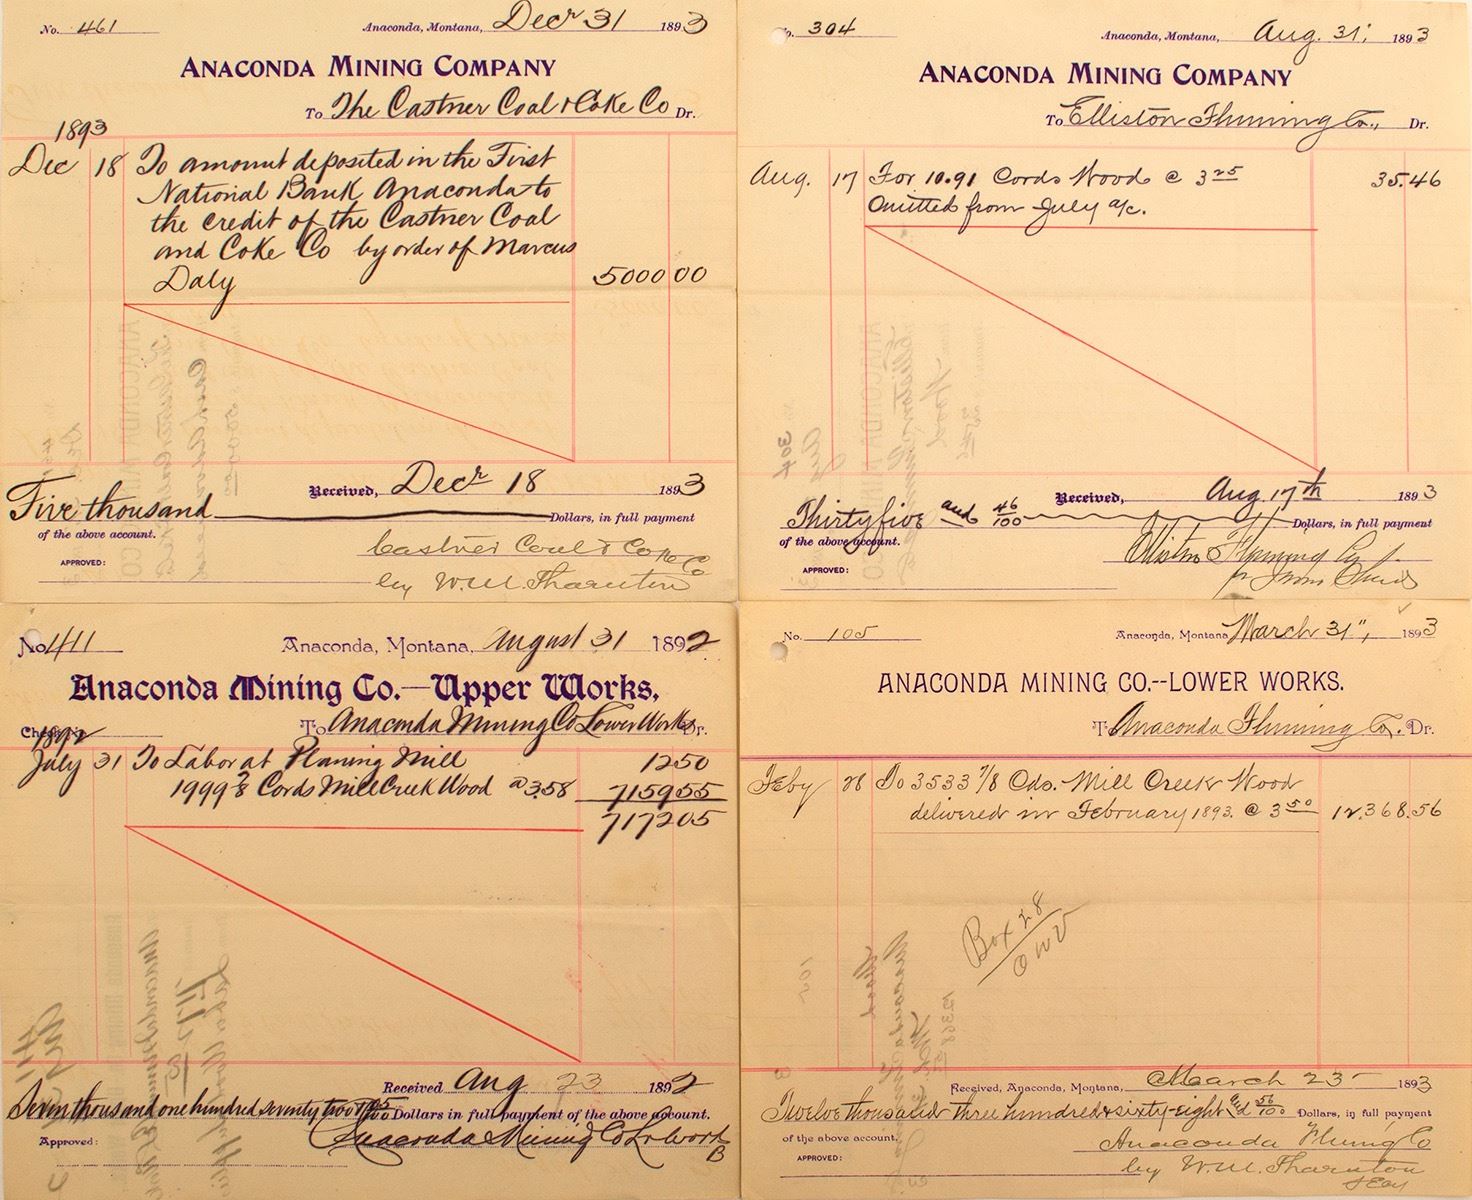 No. 461
Anaconda, Montana, Decr 31 1893
ANACONDA MINING COMPANY
To The Castner Coal & Coke Co Dr.
1893
Dec 18 To amount deposited in the First
National Bank Anaconda to
the credit of the Castner Coal
and Coke Co by order of Marcus
Daly 5000 00
Received, Decr 18 1893
Five thousand Dollars, in full payment
of the above account.
Castner Coal & Coke Co
APPROVED:
by W.M. Thornton
No. 304
Anaconda, Montana, Aug. 31, 1893
ANACONDA MINING COMPANY
To Elliston Fluming Co., Dr.
Aug. 17 For 10.91 Cords Wood @ 3 25 35.46
Omitted from July a/c.
Received, Aug. 17th 1893
Thirty five and 46/100 Dollars, in full payment
of the above account.
Elliston Fluming Co
APPROVED:
No 411
Anaconda, Montana, August 31 1892
Anaconda Mining Co.—Upper Works,
Check No.
To Anaconda Mining Co Lower Works Dr.
1892
July 31 To Labor at Planing Mill 12 50
1999 7/8 Cords Mill Creek Wood @ 3.58 7159 55
7172 05
Received Aug 23 1892
Seven thousand one hundred seventy two 05/100 Dollars in full payment of the above account.
Anaconda Mining Co Lr Work
Approved:
B
No. 105
Anaconda, Montana March 31", 1893
ANACONDA MINING CO.--LOWER WORKS.
To Anaconda Fluming Co. Dr.
Feby 28 To 3533 7/8 Cds. Mill Creek Wood
delivered in February 1893. @ 3 50 12,368.56
Box 28
OWV
Received, Anaconda, Montana, March 23 1893
Twelve thousand three hundred & sixty-eight and 56/100 Dollars, in full payment
of the above account.
Anaconda Fluming Co
APPROVED:
by W.M. Thornton